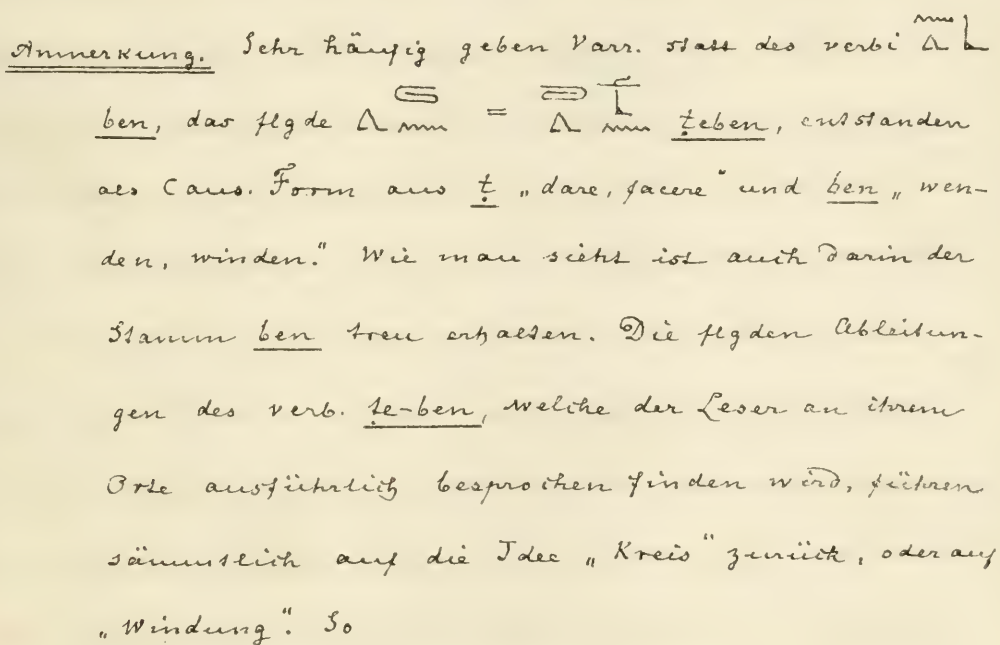 Anmerkung. Sehr häufig geben Varr. statt des verbi
ben, das flgde = ṭeben, entstanden
als Caus. Form aus ṭ „dare, facere" und ben „wen-
den, winden." Wie man sieht ist auch darin der
Stamm ben treu erhalten. Die flgden Ableitun-
gen des verb. ṭe-ben, welche der Leser an ihrem
Orte ausführlich besprochen finden wird, führen
sämmtlich auf die Idee „Kreis" zurück, oder auf
„Windung". So